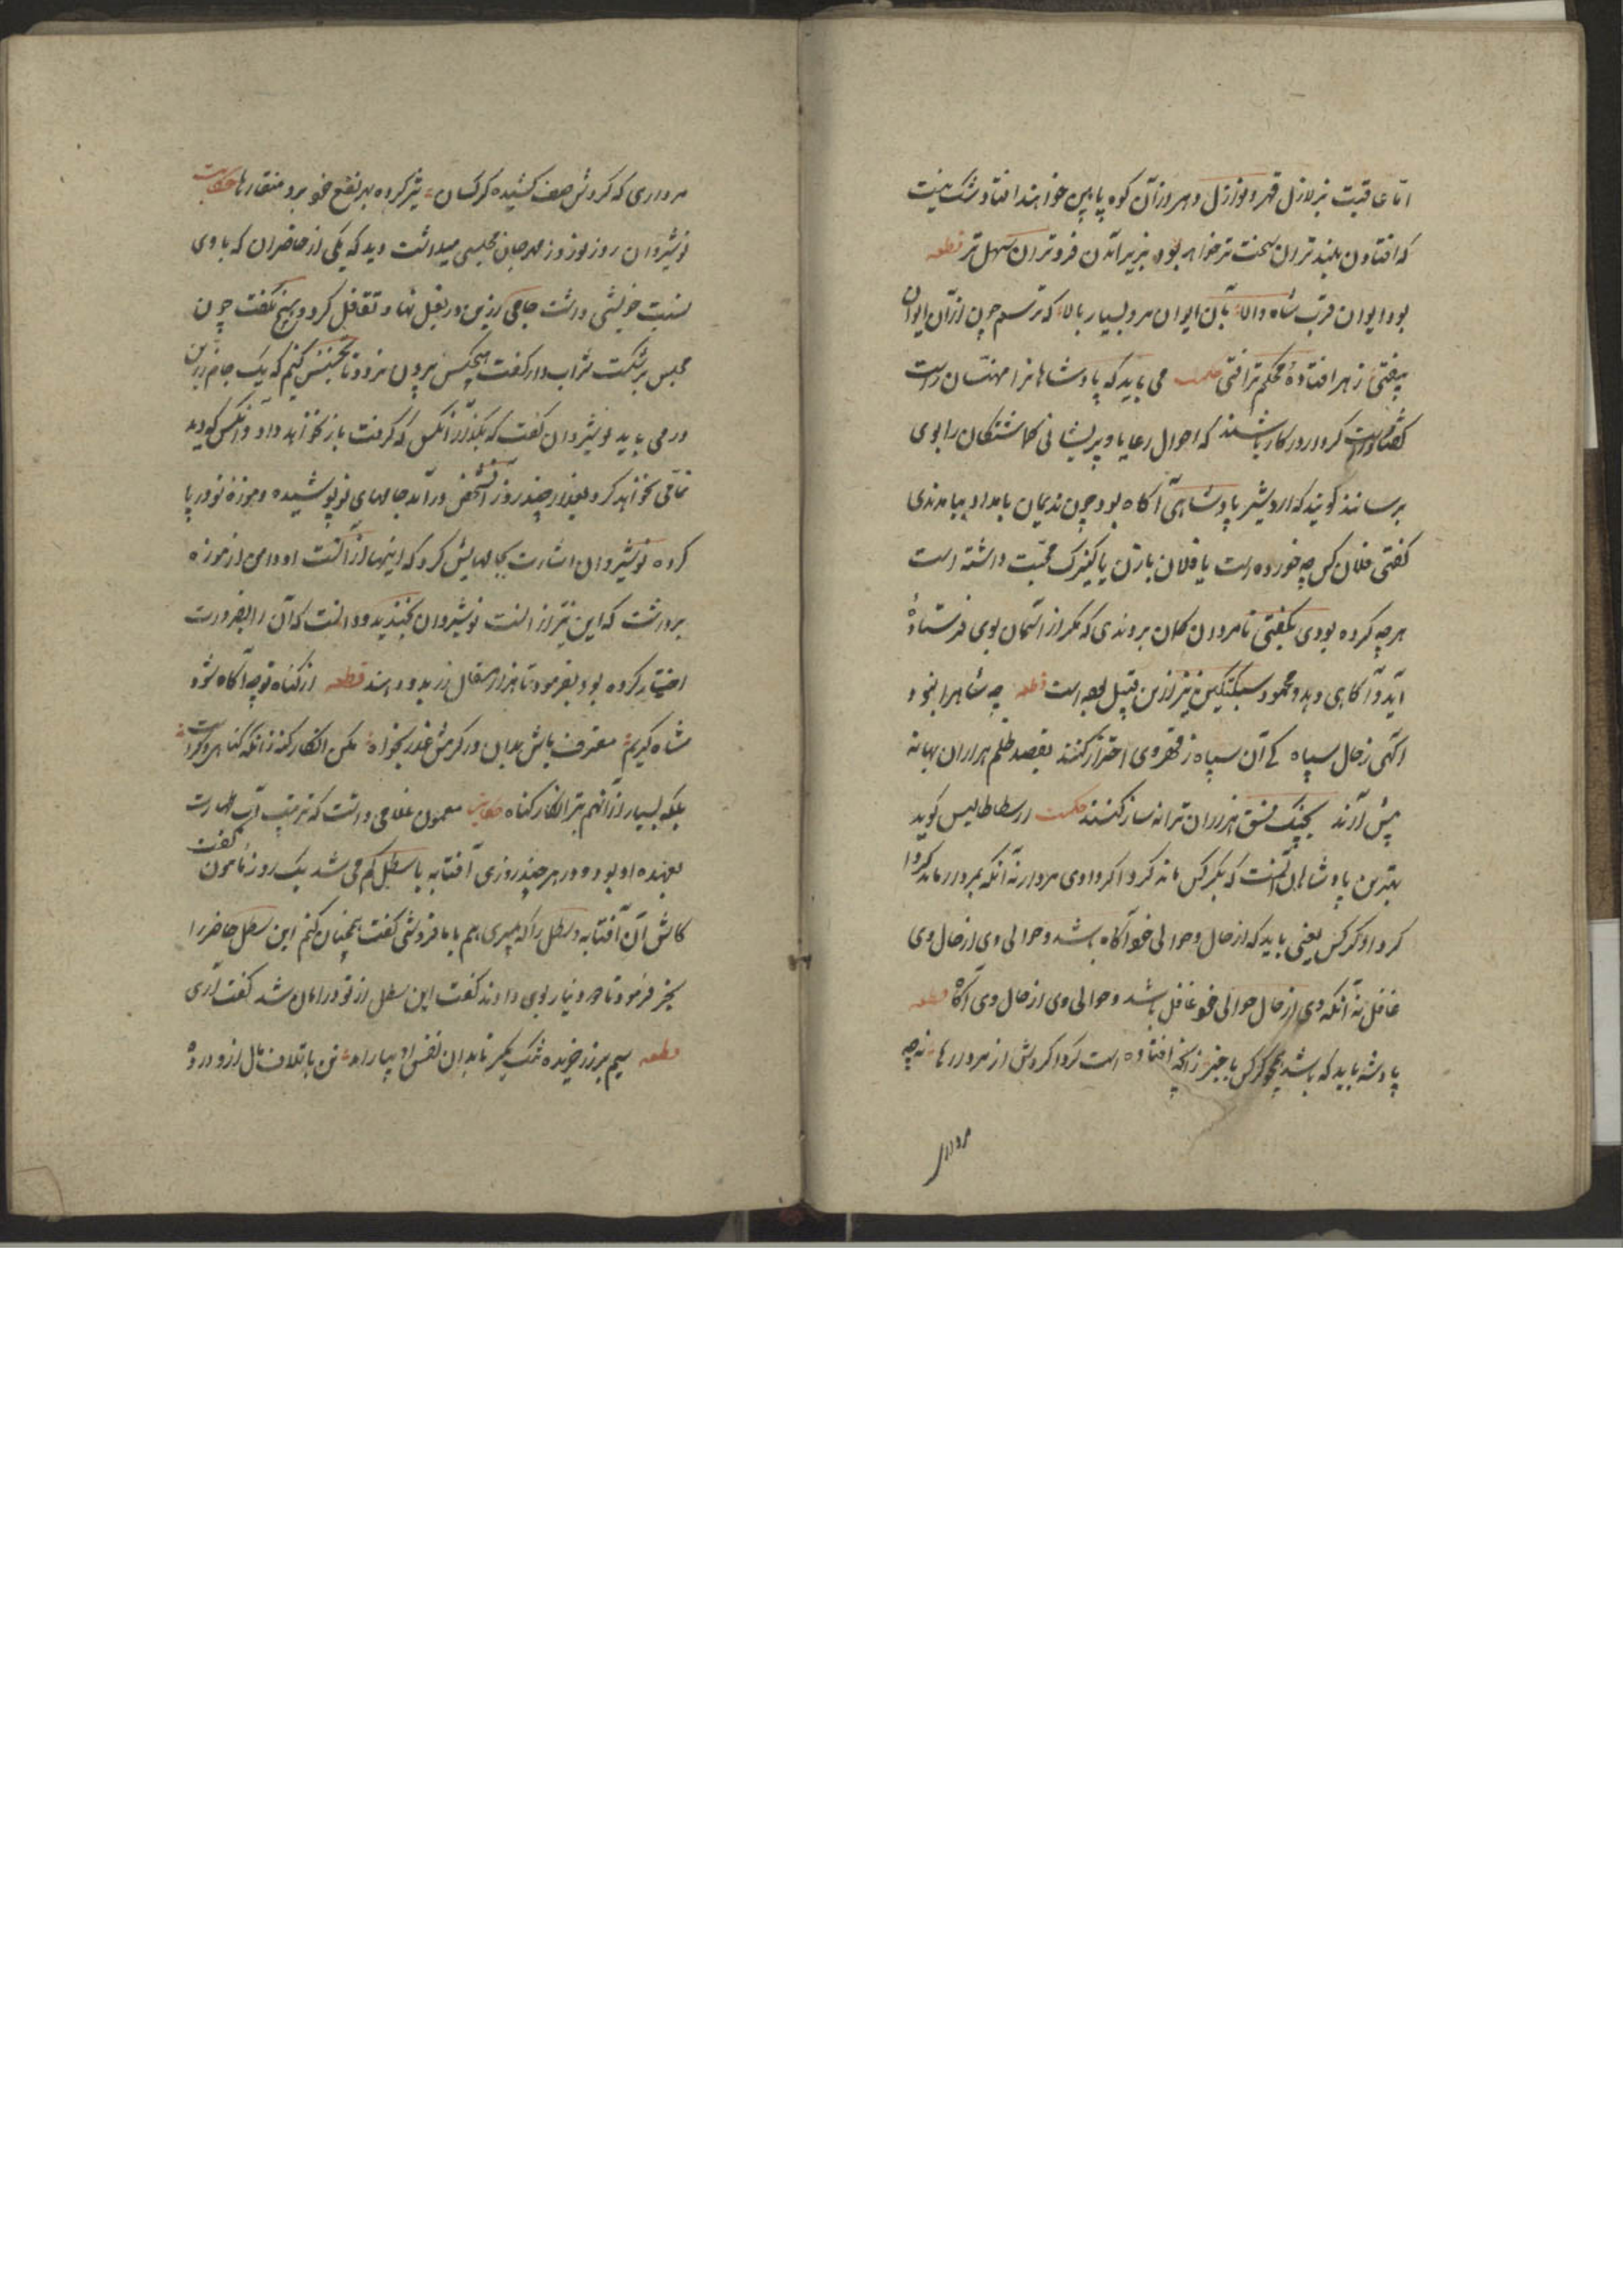 اما عاقبت بزلازل قهر و نوازل دهر از آن کوه پایین خواهند افتاد و شک نیست
که افتادن بلندتران سخت تر خواهد بود و بزیر آمدن فروتران سهل تر قطعه
بود ایوان قرب شاه والا بآن ایوان مرو بسیار بالا که ترسم چون از آن ایوان
بیفتی ز هر افتاده محکم تر افتی حکمت می باید که پادشاهان را منهیان راست
گفتار و راست کردار در کار باشند که احوال رعایا و پریشانی گماشتگان را بوی
برسانند گویند که اردشیر پادشاهی آگاه بود چون ندیمان بامداد بیامدندی
گفتی فلان کس چه خورده است یا فلان با زن یا کنیزک صحبت داشته است
هر چه کرده بودی بگفتی تا مردمان گمان بردندی که مگر از آسمان بوی فرستاده
آید و آگاهی دهد و محمود سبکتکین نیز ازین قبیل بوده است قطعه چه شاه را نبود
آگهی ز حال سپاه کی آن سپاه ز قهر وی احتراز کنند بقصد ظلم هزاران بهانه
پیش آرند بچنگ فسق هزاران ترانه ساز کنند حکمت ارسطاطالیس گوید
بهترین پادشاهان آنست که بکرکس ماند گرداگرد وی مردار نه آنکه بمردار ماند گردا
گرد او کرکس یعنی باید که از حال و حوالی خود آگاه باشد و حوالی وی از حال وی
غافل نه آنکه وی از حال حوالی خود غافل باشد و حوالی وی از حال وی آگاه قطعه
پادشه باید که باشد همچو کرکس با خبر زانچه افتاده است گرداگردش از مردارها نه چه
مرداری
مرداری که گردش صف کشیده کرکسان تیز کرده بهر نفع خود برو منقارها حکایت
نوشیروان روز نوروز و مهرجان مجلسی میداشت دید که یکی از حاضران که با وی
نسبت خویشی داشت جامی زرین در بغل نهاد تغافل کرد و هیچ نگفت چون
مجلس برشکست شراب دار گفت هیچکس بیرون نرود تا تجسس کنم که یک جام زرین
در می باید نوشیروان گفت که بگذار آنکس که گرفت باز نخواهد داد و آنکس که دید
نمامی نخواهد کرد بعد از چند روز آنشخص درآمد جامهای نو پوشیده و موزه نو در پا
کرده نوشیروان اشارت بجامهایش کرد که اینها از آنست او دامن از موزه
برداشت که این نیز از آنست نوشیروان بخندید و دانست که آن را بضرورت
اختیار کرده بود بفرمود تا هزار مثقال زر بدو دهند قطعه از گناه تو چه آگاه شود
شاه کریم معترف باش بدان در کرمش عذر بخواه مکن انکار گنه زانکه گناه دگر است
بلکه بسیار از آن هم بتر انکار گناه حکایت مامون غلامی داشت که ترتیب آب طهارت
بعهده او بود و در هر چند روزی آفتابه یا سطل گم می شد یک روز مامون گفت
کاش آن آفتابه و سطل را که میبری هم با ما فروشی گفت همچنان کنم این سطل حاضر را
بخر فرمود تا دو دینار بوی دادند گفت این سطل از تو در امان شد گفت آری
قطعه سیم بر زر خریده تنگ مگیر تا بدان نفس او بیاراید تن باتلاف مال ازو در ده